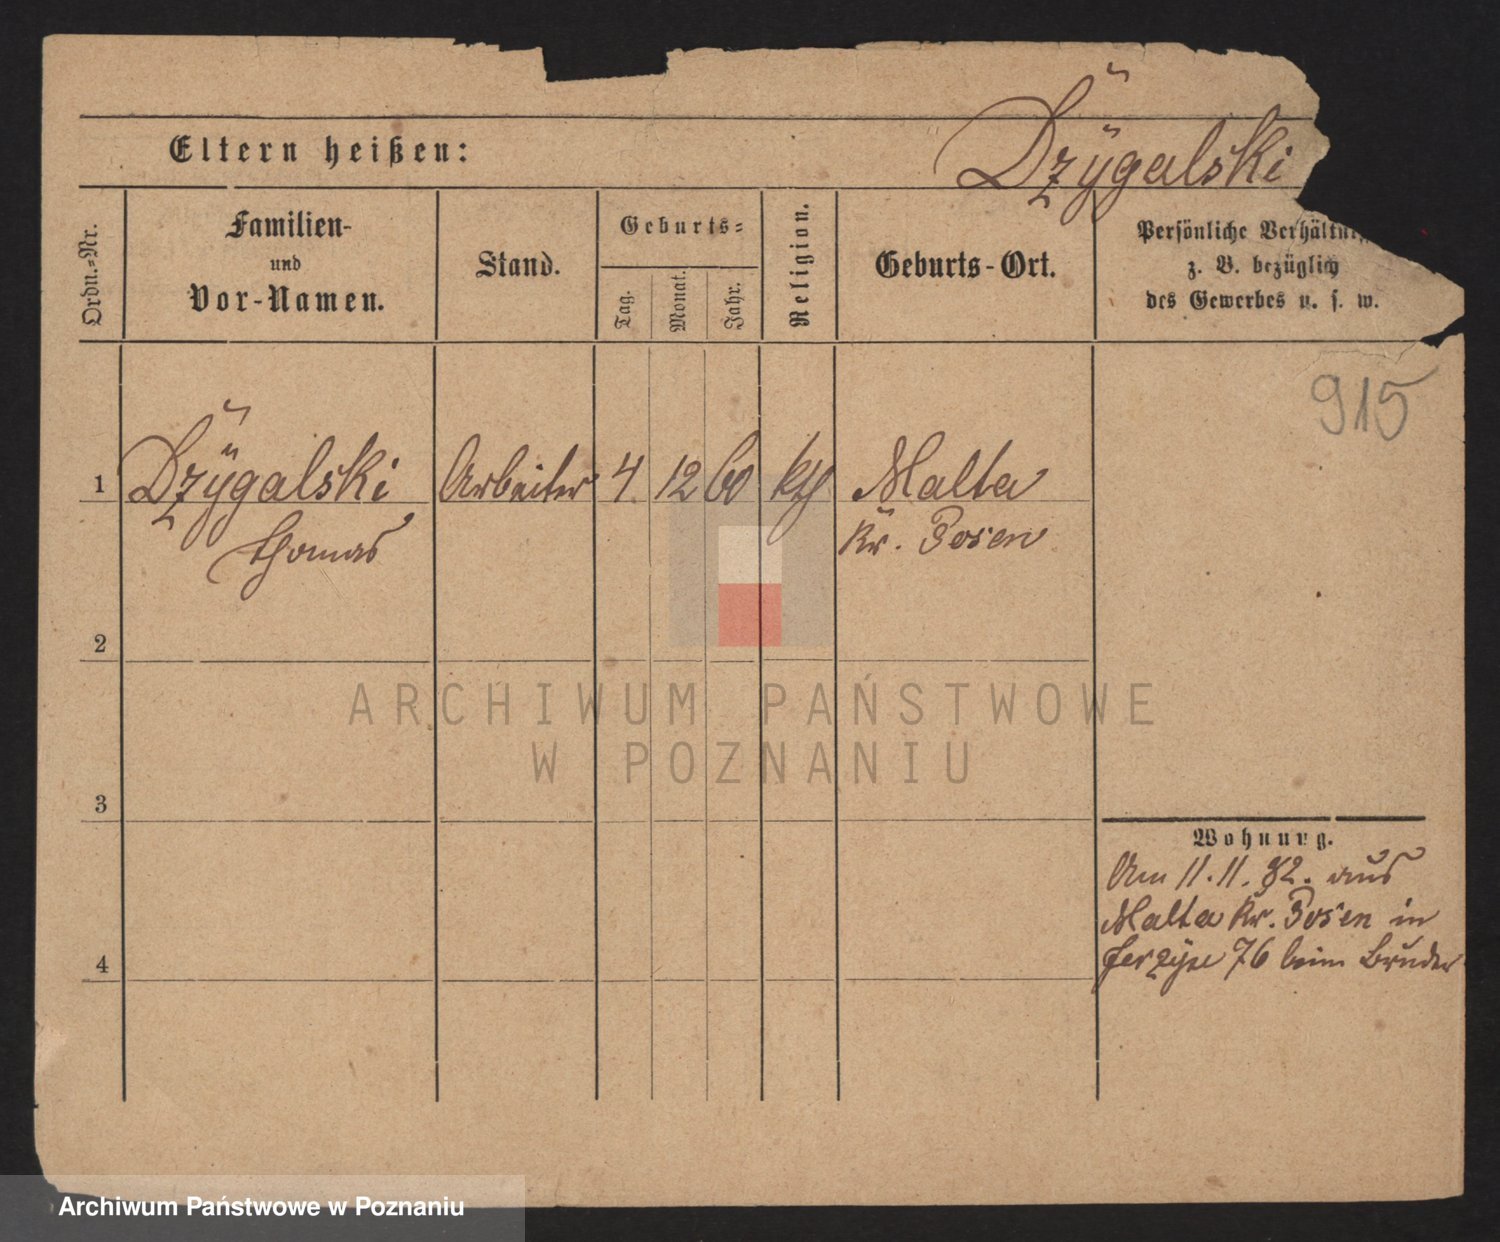 Dzÿgalski
Eltern heißen:
Ordn.-Nr.
Familien-
und
Vor-Namen.
Stand.
Geburts-
Tag.
Monat.
Jahr.
Religion.
Geburts-Ort.
Persönliche Verhältni
z. B. bezüglich
des Gewerbes u. s. w.
915
1 Dzÿgalski Arbeiter 4 12 60 kth Malta
Thomas Kr. Posen
2
3
4
Wohnung.
Am 11.11.82. aus
Malta Kr. Posen in
Jerzÿce 76 beim Bruder
ARCHIWUM PAŃSTWOWE
W POZNANIU
Archiwum Państwowe w Poznaniu